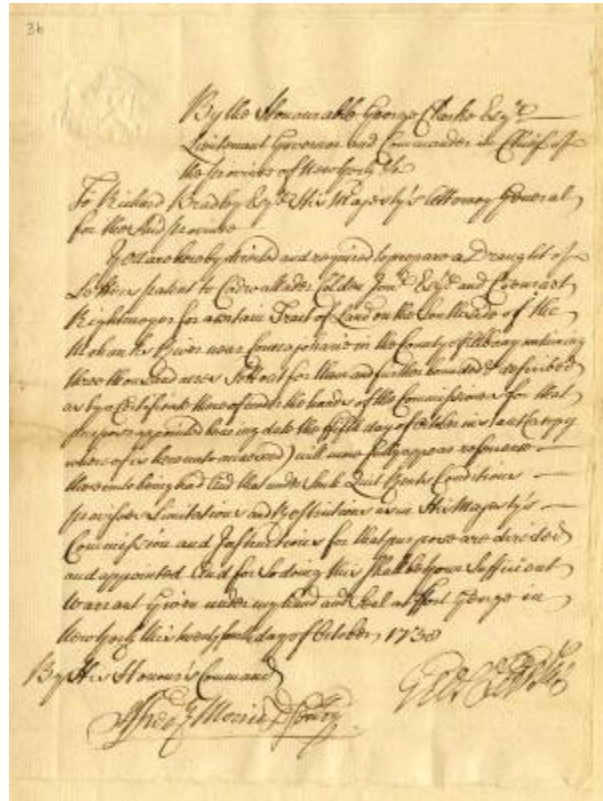 36
By the Honourable George Clarke Esqr.
Lieutenant Governor and Commander in Chief of
the province of New York &c
To Richard Bradley Esqr. His Majesty's Attorney General
for the said province
You are hereby directed and required to prepare a Draught of
Letters patent to Cadwallader Colden Junr. Esqr. and Coenraet
Rightmeyer for a certain Tract of Land on the South side of the
Mohawks River near Conajohane in the County of Albany containing
three thousand acres Sett out for them and further bounded & described
as by a Certificate thereof under the hands of the Commissioners for that
purpose appointed bearing date the fifth day of October instant (a copy
whereof is hereunto annexed) will more fully appear reference
thereunto being had And that under such Quit Rents Conditions
provisoes Limitations and Restrictions as in His Majesty's
Commission and Instructions for that purpose are directed
and appointed And for so doing this shall be your Sufficient
Warrant Given under my hand and Seal at Fort George in
New York this twenty day of October 1738
By His Honour's Command
Geo Clarke
Fredk Morris D Secry